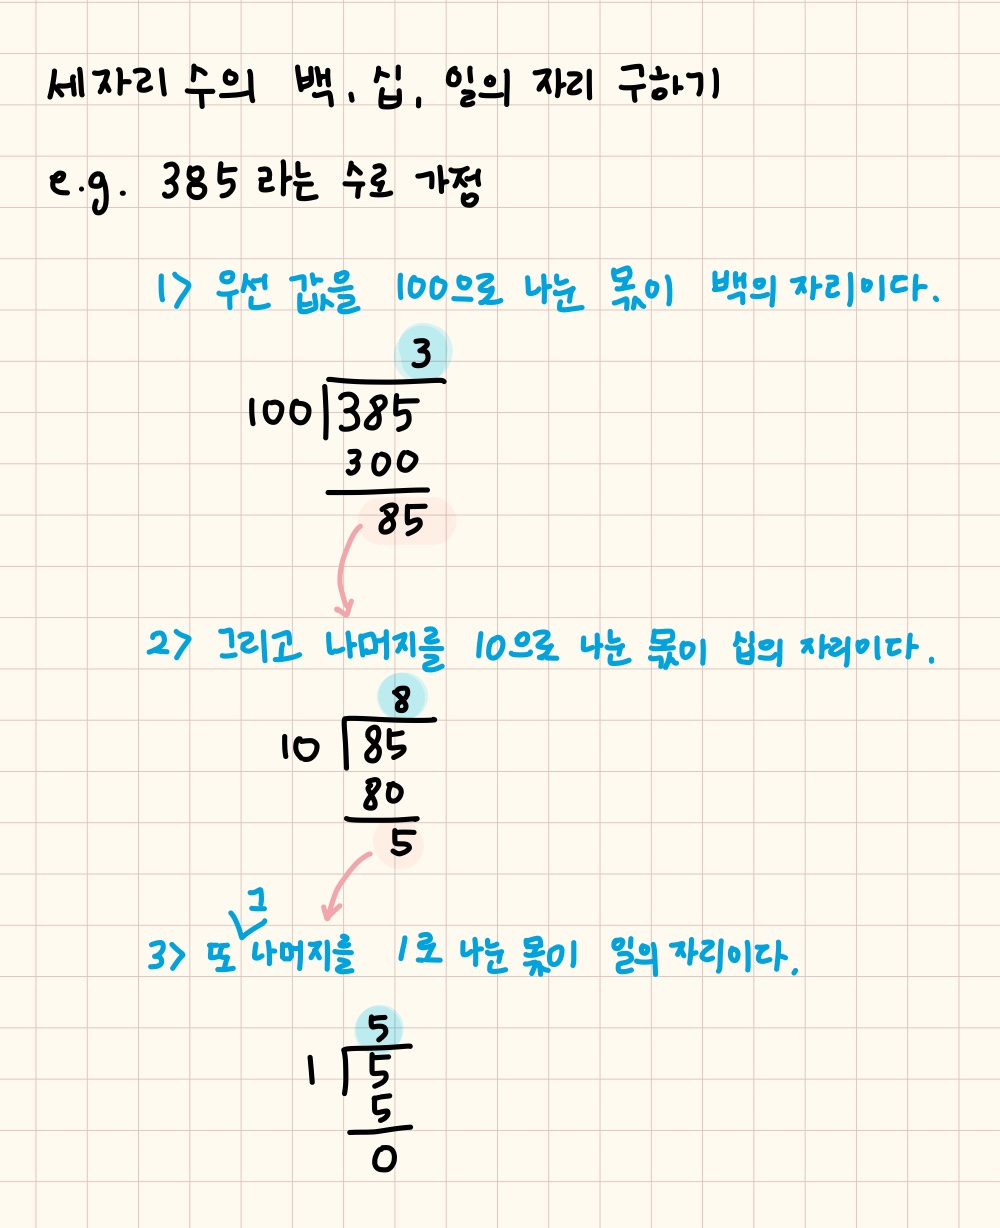 세자리 수의 백, 십, 일의 자리 구하기
e.g. 385 라는 수로 가정
1> 우선 값을 100으로 나눈 몫이 백의 자리이다.
3
100 385
300
85
2> 그리고 나머지를 10으로 나눈 몫이 십의 자리이다.
8
10 85
80
5
그
3> 또 나머지를 1로 나눈 몫이 일의 자리이다.
5
1 5
5
0